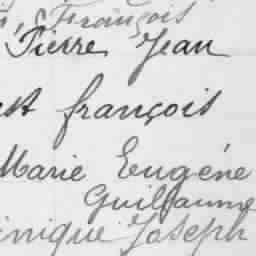 François
Pierre Jean
françois
Marie Eugène
Guillaume
Joseph